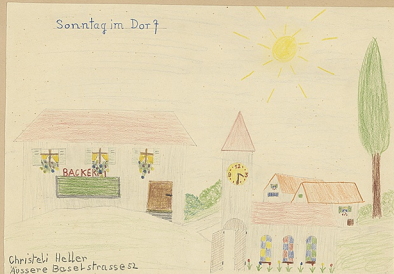 Sonntag im Dorf
BACKEREI
Christeli Heller
Äussere Baselstrasse 52